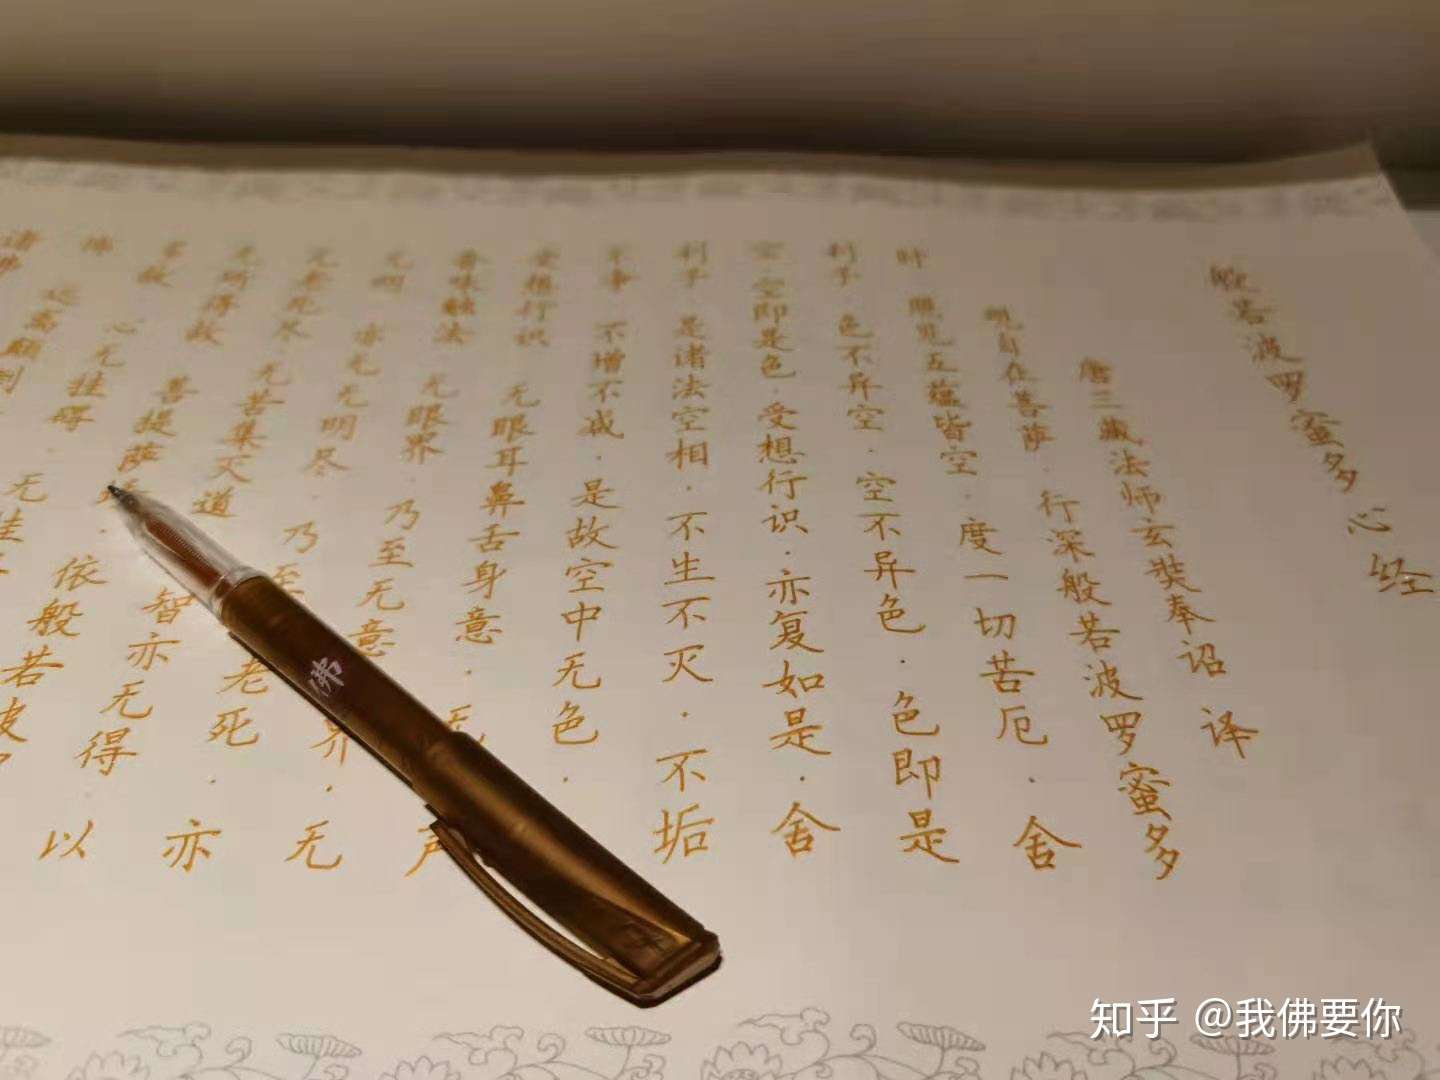 般若波罗蜜多心经
唐三藏法师玄奘奉诏译
观自在菩萨·行深般若波罗蜜多
时 照见五蕴皆空·度一切苦厄·舍
利子 色不异空·空不异色·色即是
空·空即是色·受想行识·亦复如是·舍
利子 是诸法空相·不生不灭·不垢
不净 不增不减·是故空中无色·
受想行识 无眼耳鼻舌身意·无
香味触法 无眼界·乃至无意界·无
无明 亦无无明尽·乃至老死·亦
无老死尽·无苦集灭道 智亦无得 以
无所得故 菩提萨埵·依般若波
故 心无挂碍·无挂
怖 远离颠倒
诸佛
佛
知乎 @我佛要你